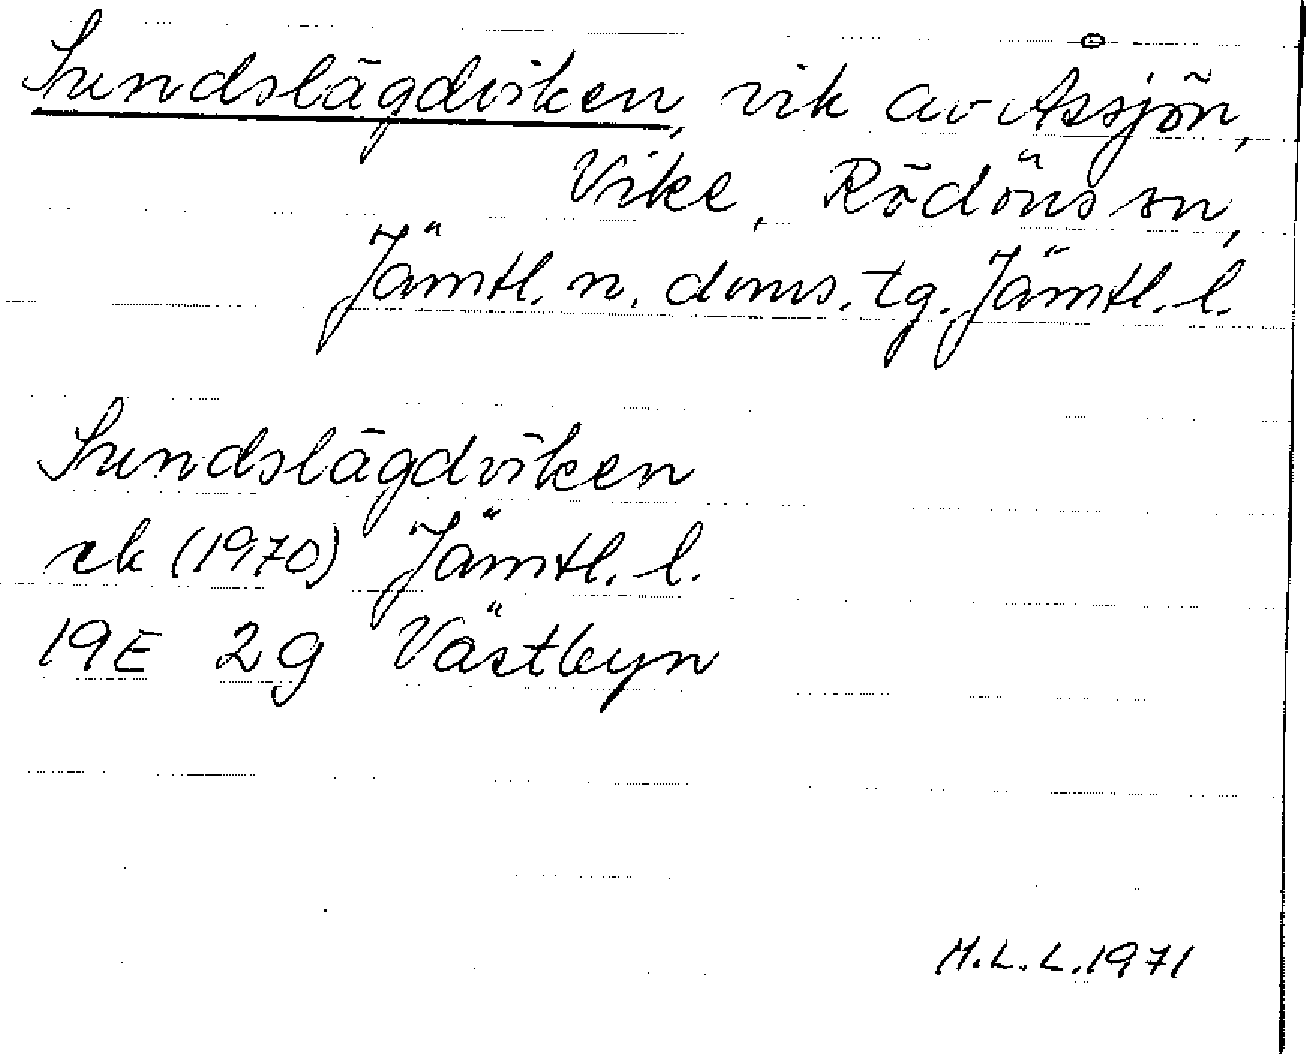 Sundslägdviken, vik av Åssjön,
Vike, Rödöns sn,
Jämtl. n. doms. tg. Jämtl. l.
Sundslägdviken
ek (1970) Jämtl. l.
19E 2g Västbyn
M.L.L. 1971